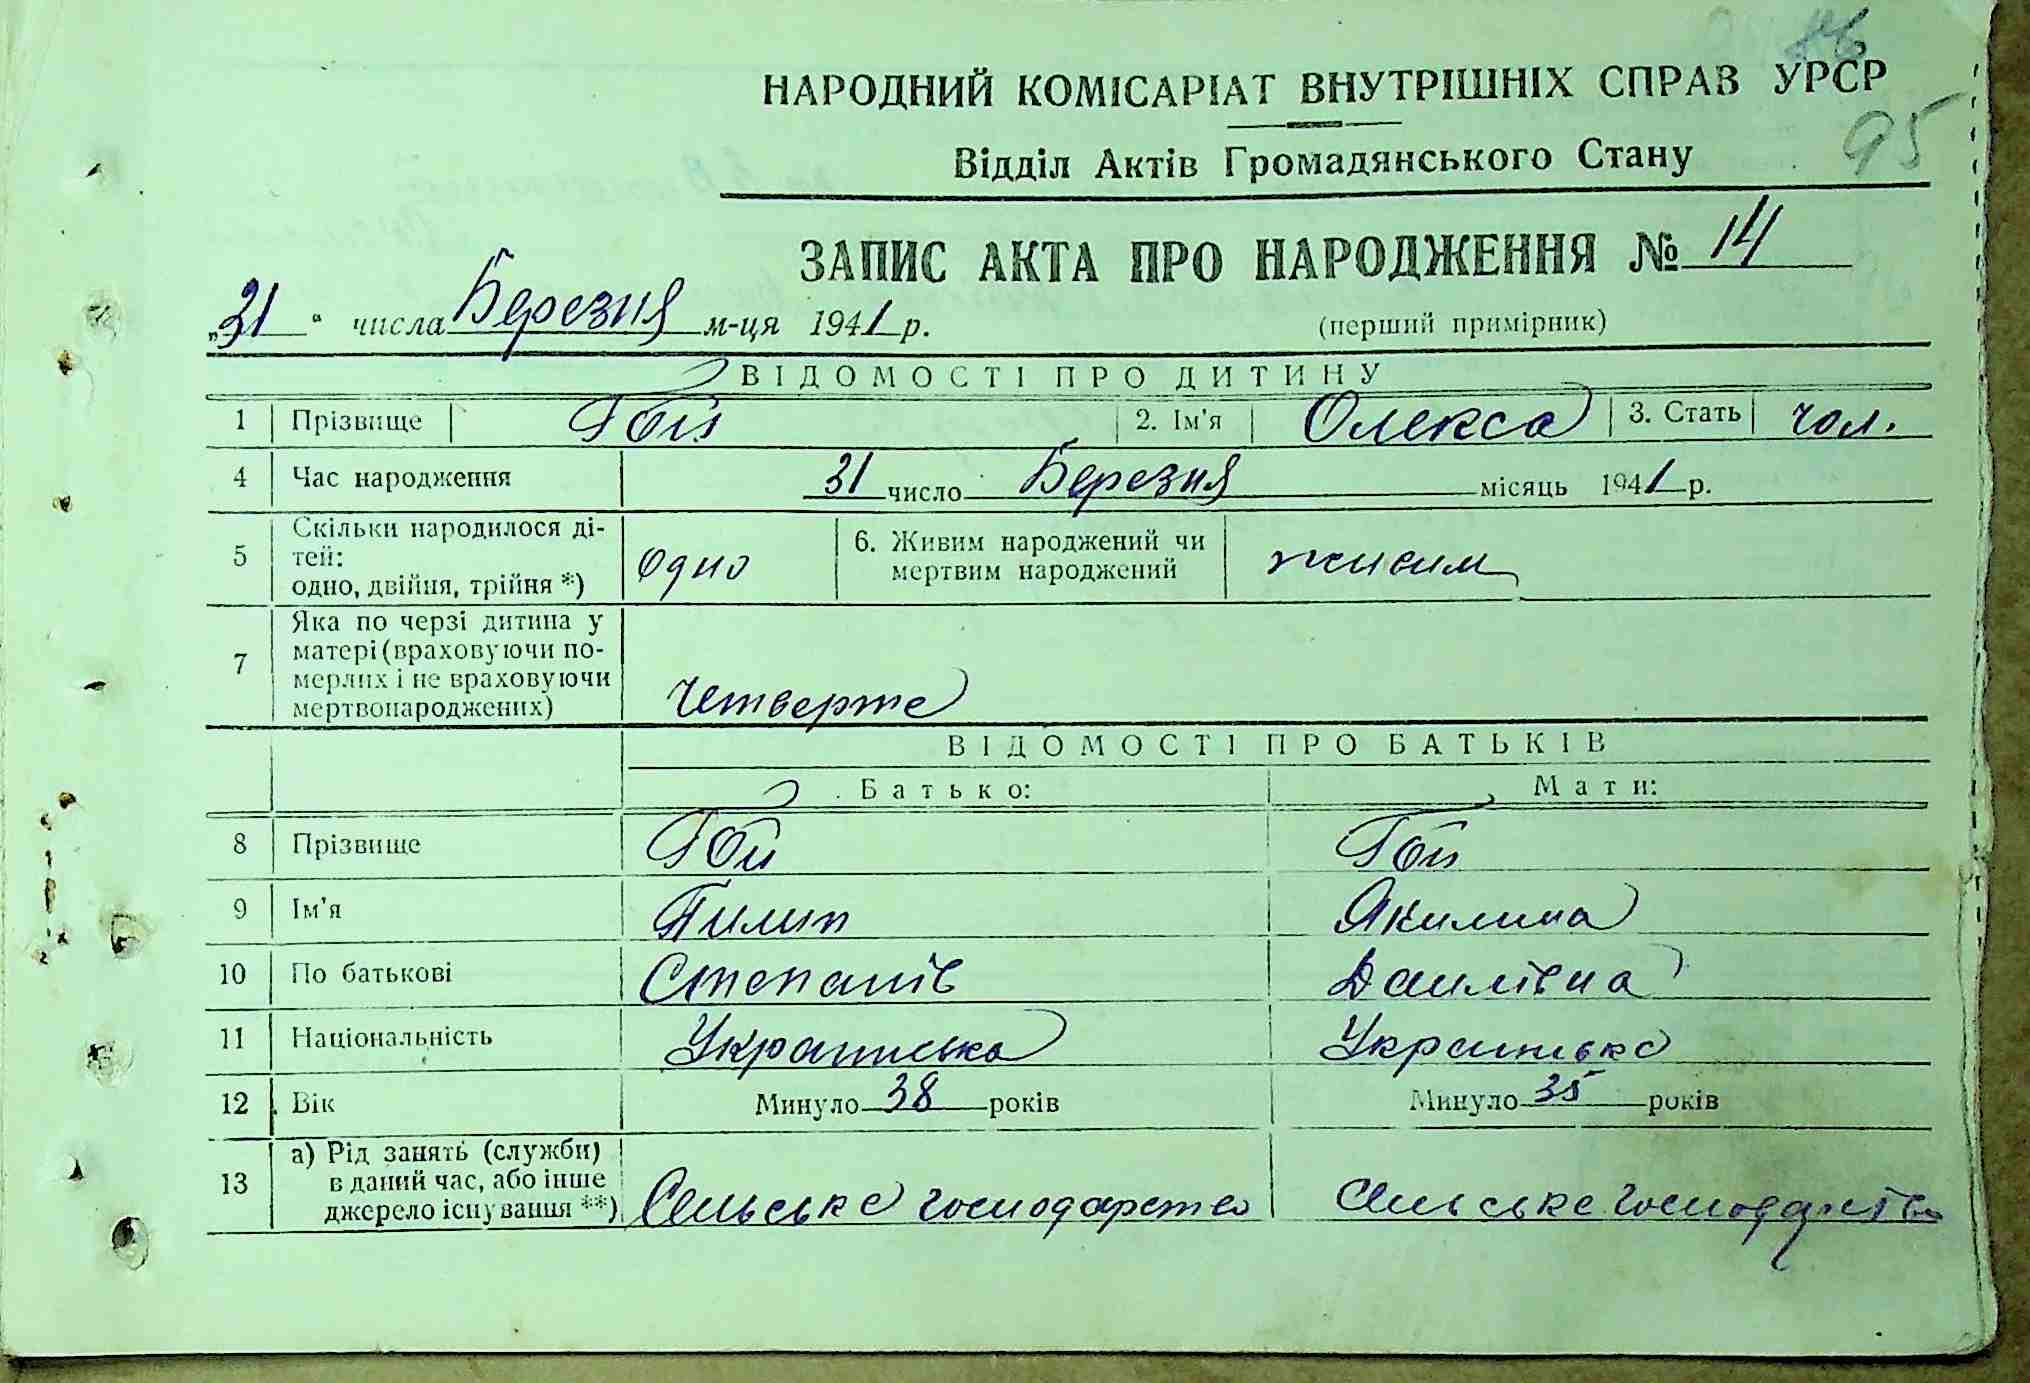 95
НАРОДНИЙ КОМІСАРІАТ ВНУТРІШНІХ СПРАВ УРСР
Відділ Актів Громадянського Стану
ЗАПИС АКТА ПРО НАРОДЖЕННЯ № 14
„31" числа Березня м-ця 1941 р. (перший примірник)
ВІДОМОСТІ ПРО ДИТИНУ
1 Прізвище Гой 2. Ім'я Олекса 3. Стать чол.
4 Час народження 31 число Березня місяць 1941 р.
5 Скільки народилося ді-
тей:
одно, двійня, трійня *) Одно 6. Живим народжений чи
мертвим народжений живим
7 Яка по черзі дитина у
матері (враховуючи по-
мерлих і не враховуючи
мертвонароджених) Четверте
ВІДОМОСТІ ПРО БАТЬКІВ
Батько: Мати:
8 Прізвище Гой Гой
9 Ім'я Пилип Якилина
10 По батькові Степанів Данилівна
11 Національність Українська Українська
12 Вік Минуло 38 років Минуло 35 років
13 а) Рід занять (служби)
в даний час, або інше
джерело існування **) Сельське господарство Сельське господарство